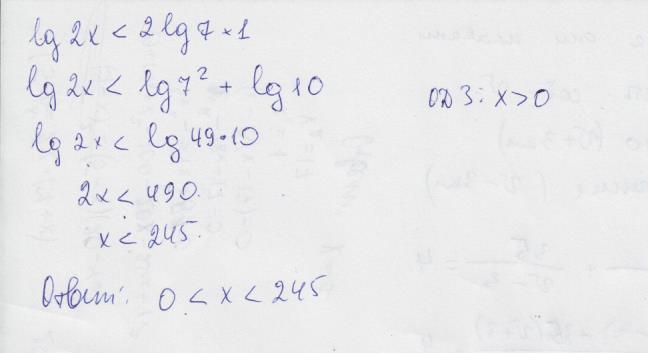 lg 2x < 2 lg 7 + 1
lg 2x < lg 7² + lg 10
ОДЗ: x > 0
lg 2x < lg 49 · 10
2x < 490.
x < 245.
Ответ: 0 < x < 245